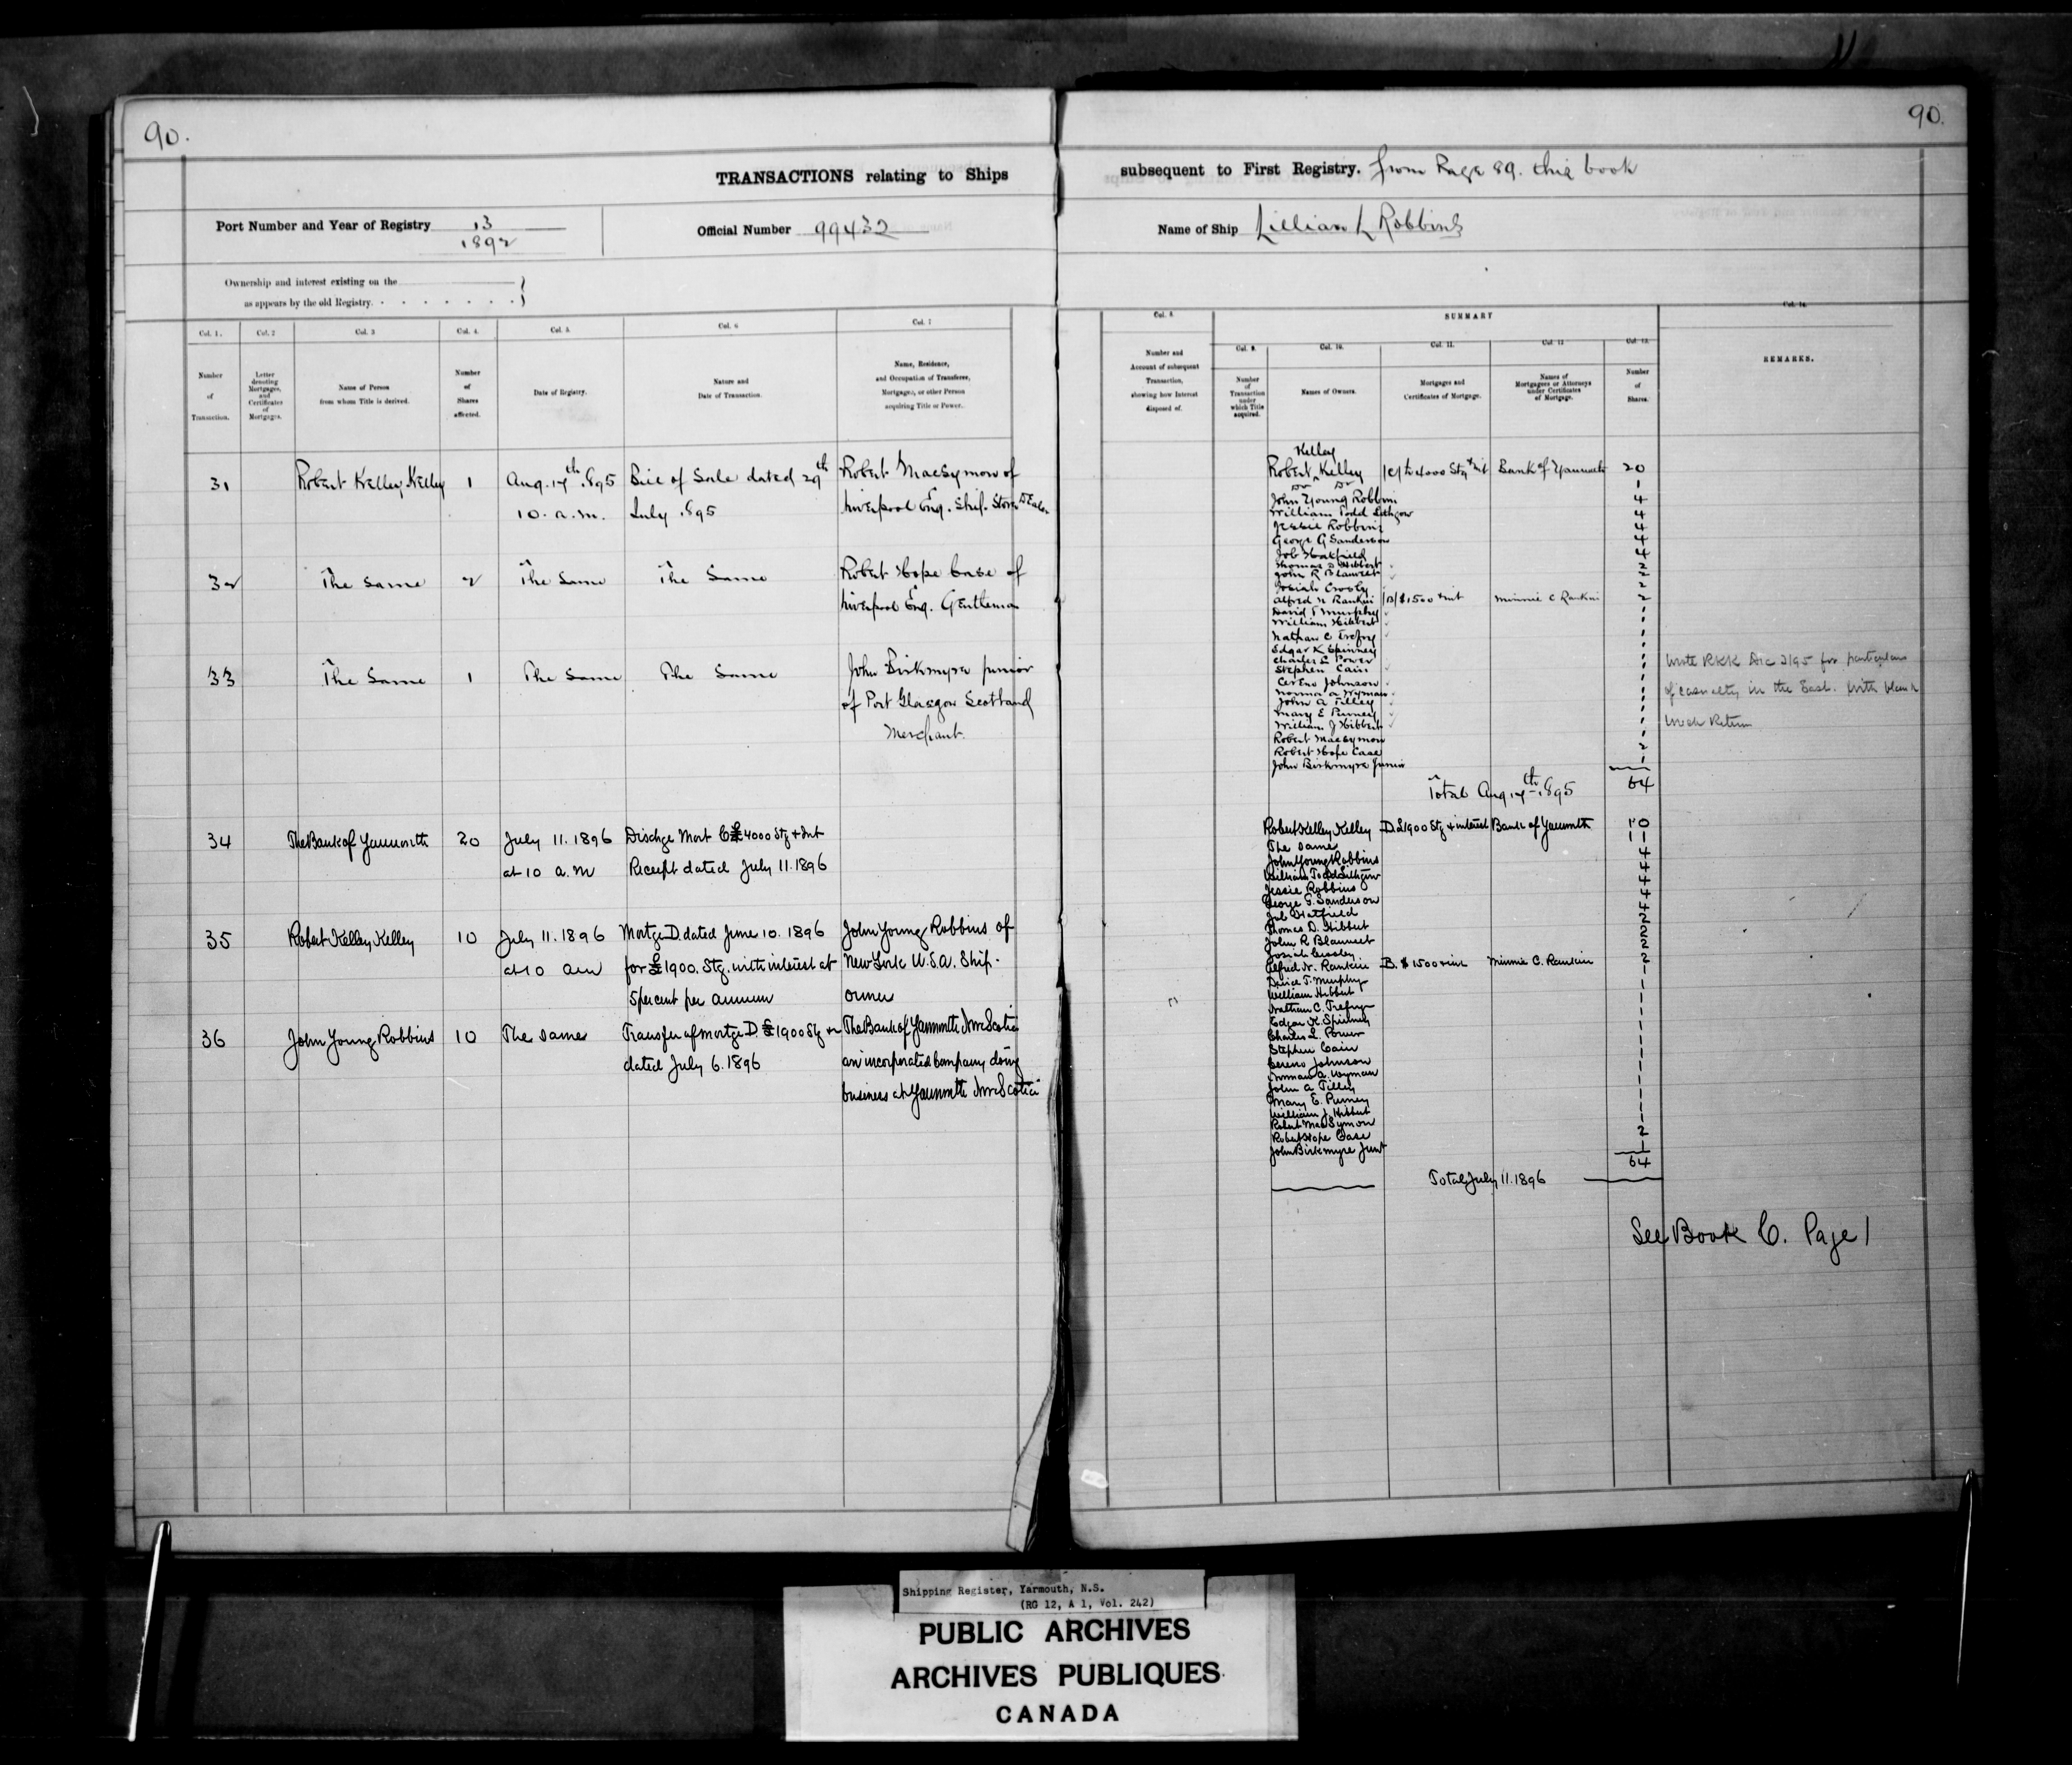 90.
TRANSACTIONS relating to Ships
Port Number and Year of Registry 13
1892
Official Number 99432
Ownership and interest existing on the
as appears by the old Registry.
Col. 1.
Col. 2
Col. 3
Col. 4.
Col. 5.
Col. 6
Col. 7
Number
of
Transaction.
Letter
denoting
Mortgages,
and
Certificates
of
Mortgages.
Name of Person
from whom Title is derived.
Number
of
Shares
affected.
Date of Registry.
Nature and
Date of Transaction.
Name, Residence,
and Occupation of Transferee,
Mortgagee, or other Person
acquiring Title or Power.
31 Robert Kelley Kelley 1 Aug. 17th 1895 Bill of Sale dated 29th Robert MacSymon of
10. a.m. July 1895 Liverpool Eng. Ship. Store Dealer
32 The same 2 The Same The Same Robert Hope Case of
Liverpool Eng. Gentleman
33 The Same 1 The Same The Same John Birkmyre junior
of Port Glasgow Scotland
Merchant.
34 The Bank of Yarmouth 20 July 11. 1896 Dischge Mort C £4000 Stg + Int
at 10 a.m Receipt dated July 11. 1896
35 Robert Kelley Kelley 10 July 11. 1896 Mortge D. dated June 10. 1896 John Young Robbins of
at 10 am for £1900. Stg. with interest at New York U.S.A. Ship-
5 percent per annum owner
36 John Young Robbins 10 The same Transfer of mortge D £1900 Stg + The Bank of Yarmouth Nova Scotia
dated July 6. 1896 an incorporated Company doing
business at Yarmouth Nova Scotia
90.
subsequent to First Registry. from Page 89. this book
Name of Ship Lillian L Robbins
Col. 8.
SUMMARY
Col. 9.
Col. 10.
Col. 11.
Col. 12
Col. 13.
Col. 14.
Number and
Account of subsequent
Transaction,
showing how Interest
disposed of.
Number
of
Transaction
under
which Title
acquired.
Names of Owners.
Mortgages and
Certificates of Mortgage.
Names of
Mortgagees or Attorneys
under Certificates
of Mortgage.
Number
of
Shares.
REMARKS.
Kelley
Robert Kelley |C| £4000 Stg + int Bank of Yarmouth 20
Do Do 1
John Young Robbins 4
William Todd Lithgow 4
Jessie Robbins 4
George G Sanderson 4
Job Hatfield 4
Thomas D Hibbert 2
John R Blauvelt 2
Josiah Crosby 2
Alfred N Rankin |B| $1500 + int Minnie C Rankin 2
David T Murphy 1
William Hibbert 1
Nathan C Trefry 1
Edgar K Spinney 1
Charles L Power 1
Stephen Cain 1
Cereno Johnson 1
Norman A Wyman 1
John A Tilley 1
Mary E Purney 1
William J Hibbert 1
Robert MacSymon 1
Robert Hope Case 2
John Birkmyre Junior 1
Total Aug 17th 1895 64
Wrote RKK Dec 2/95 for particulars
of casualty in the East. with blank
Wreck Return
Robert Kelley Kelley D. £1900 Stg + interest Bank of Yarmouth 10
The same 11
John Young Robbins 4
William Todd Lithgow 4
Jessie Robbins 4
George G. Sanderson 4
Job Hatfield 4
Thomas D. Hibbert 2
John R Blauvelt 2
Josiah Crosby 2
Alfred N. Rankin B. $1500 + int Minnie C. Rankin 2
David T. Murphy 1
William Hibbert 1
Nathan C. Trefry 1
Edgar K. Spinney 1
Charles L. Power 1
Stephen Cain 1
Cereno Johnson 1
Norman A. Wyman 1
John A Tilley 1
Mary E. Purney 1
William J. Hibbert 1
Robert MacSymon 1
Robert Hope Case 2
John Birkmyre Junr 1
64
Total July 11. 1896
See Book C. Page 1
Shipping Register, Yarmouth, N.S.
(RG 12, A 1, Vol. 242)
PUBLIC ARCHIVES
ARCHIVES PUBLIQUES
CANADA